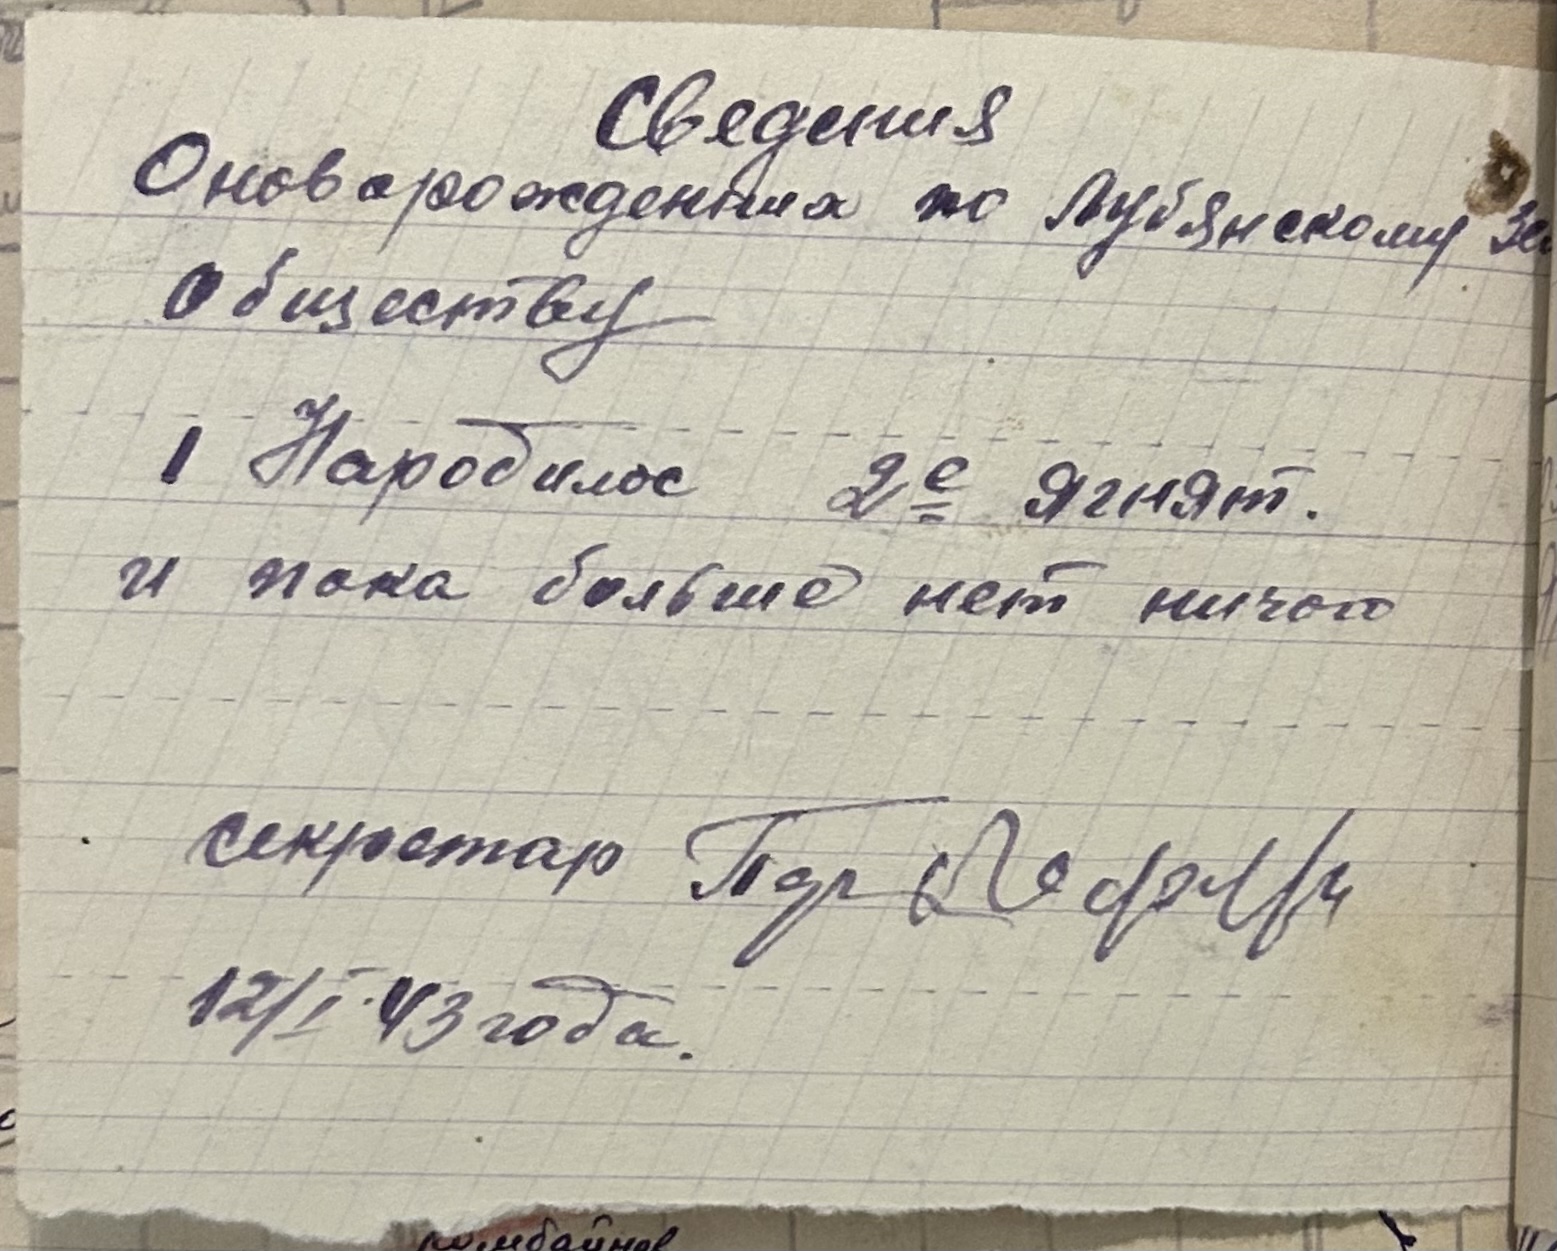 Сведения
О новорожденных по Лубянскому Зе
Обществу
1 Народилос 2е ягнят.
и пока больше нет ничого
секретар
12/I·43 года.
комбайнов